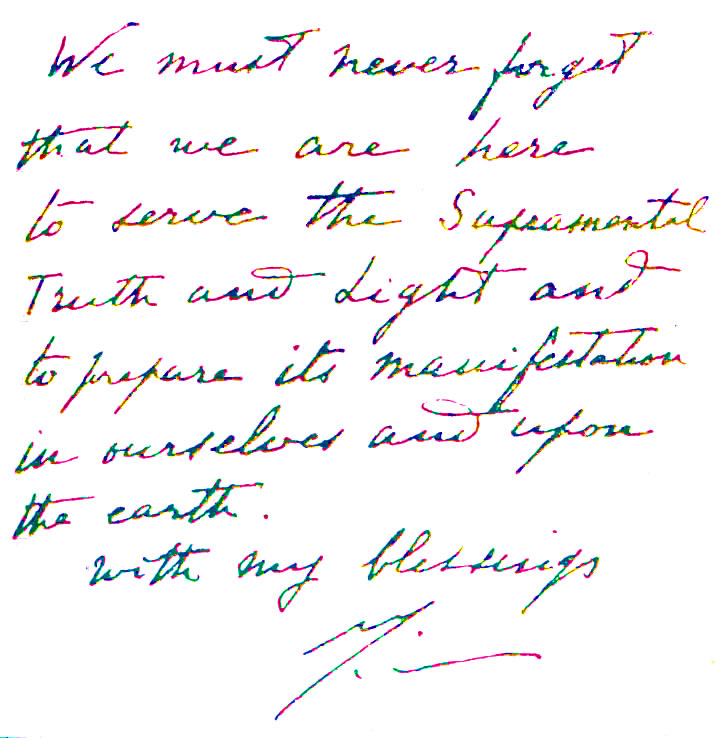 We must never forget
that we are here
to serve the Supramental
Truth and Light and
to prepare its manifestation
in ourselves and upon
the earth.
with my blessings